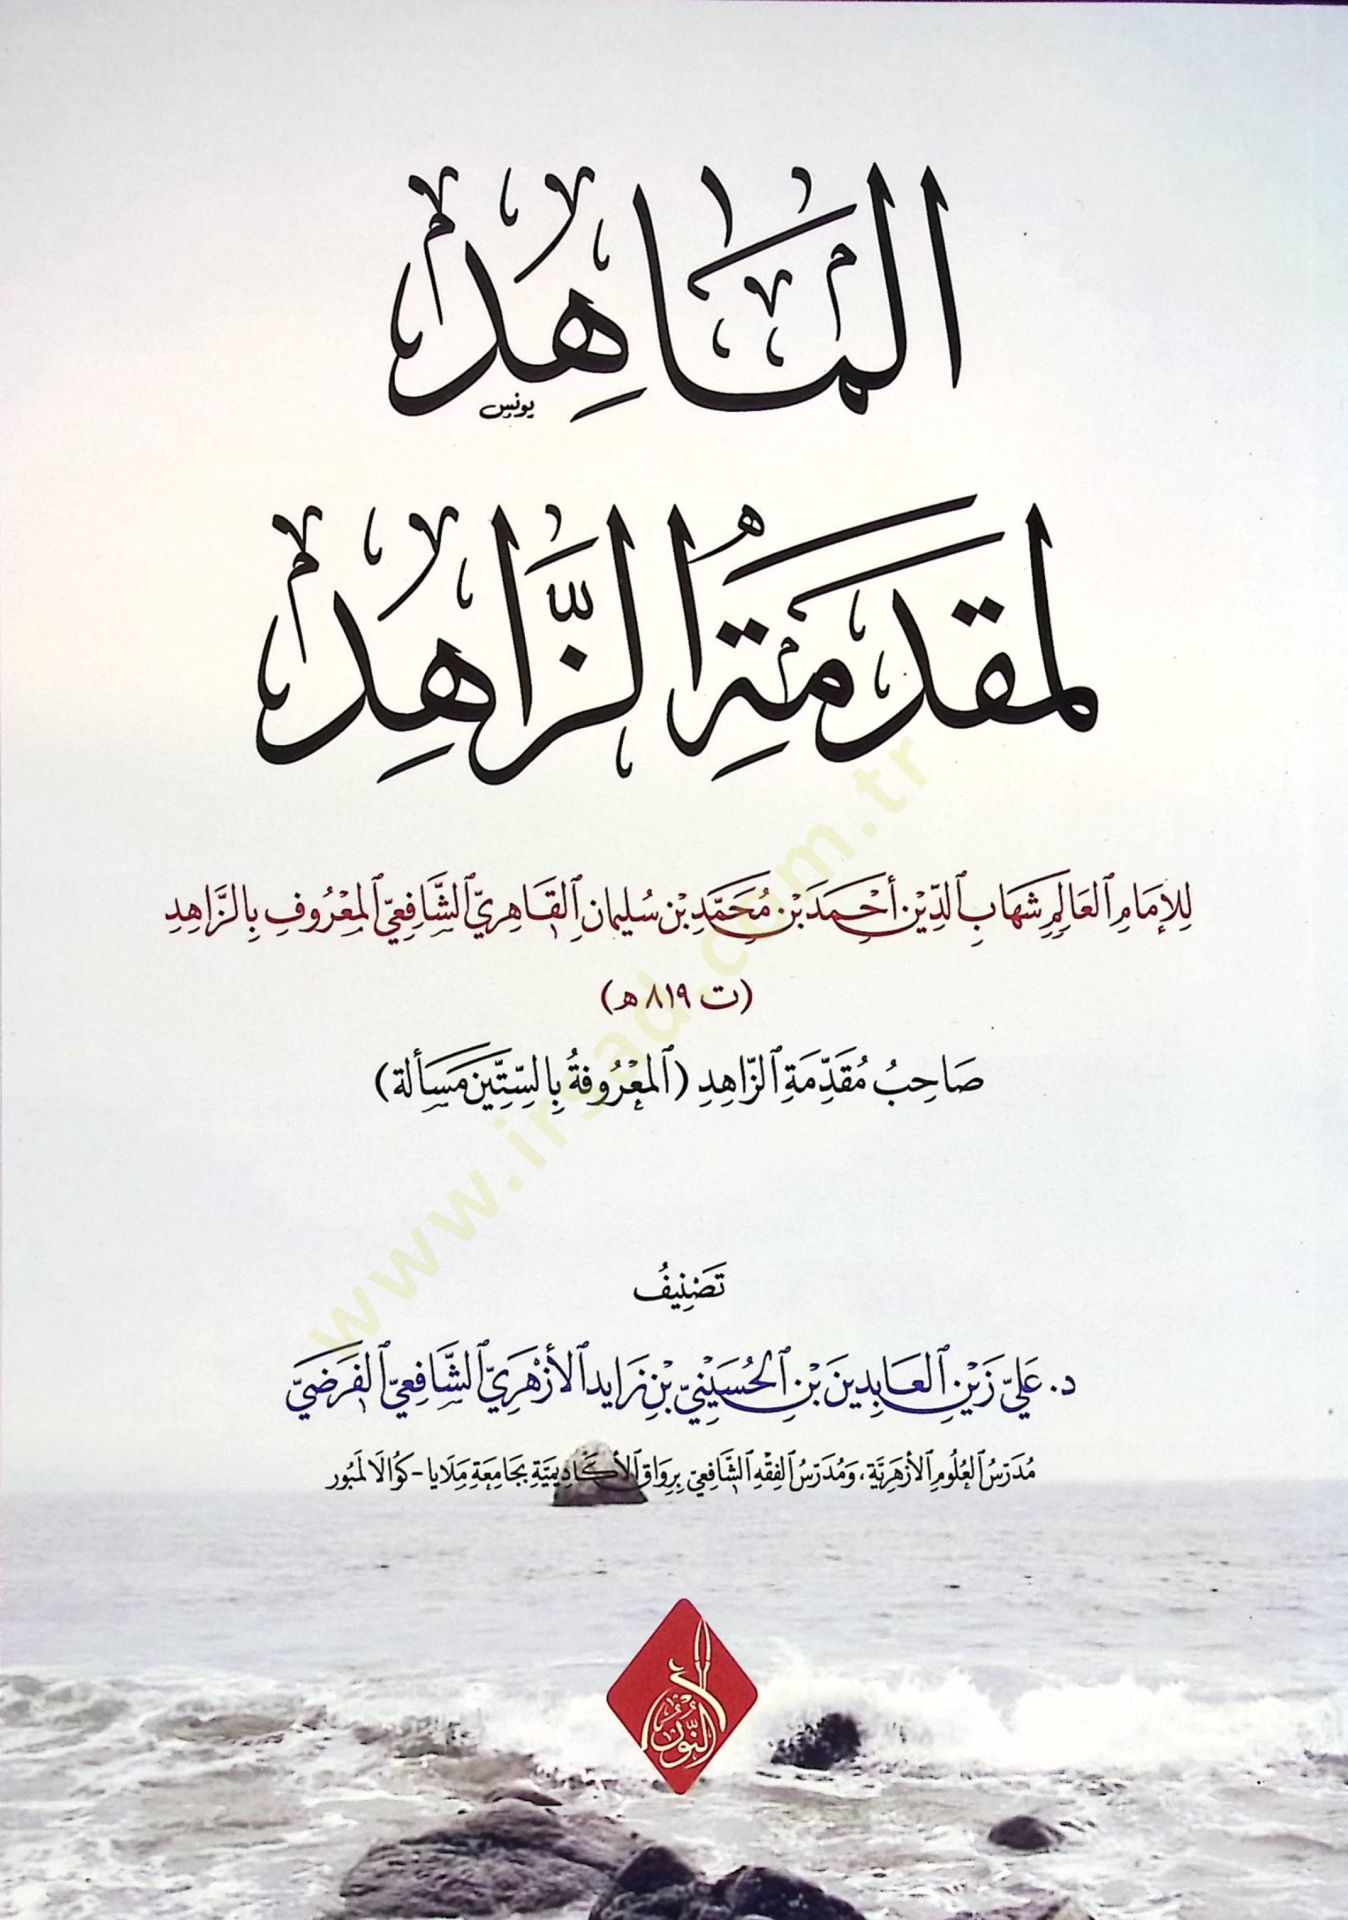 الماهد
يونس
لمقدمة الزَّاهِد
لِلإِمَامِ العَالِمِ شِهَابِ الدِّيْنِ أَحْمَدَ بْنِ مُحَمَّدِ بْنِ سُلَيمانِ القَاهِرِيّ الشَّافِعِيّ المَعْرُوفِ بِالزَّاهِدِ
(ت ٨١٩ هـ)
صَاحِبُ مُقَدِّمَةِ الزَّاهِدِ (المَعْرُوفَةُ بِالسِّتِّينَ مَسْأَلة)
تَصْنِيفُ
د. عَلِيّ زَيْنِ العَابِدِينَ بْنِ الحُسَيْنِيّ بْنِ زَايد الأَزْهَرِيّ الشَّافِعِيّ الفَرَضِيّ
مُدَرّسُ العُلُومِ الأَزهَرِيَّةِ، وَمُدَرّسُ الفِقْهِ الشَّافِعِيّ بِرِوَاقِ الأَكَادِيمِيَّةِ بِجَامِعَةِ مَلَايا - كُوَالَا لَمبُور
النُّور
www.irsad.com.tr